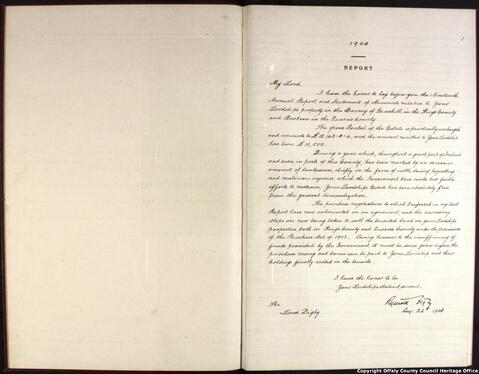 1908
1
REPORT
My Lord,
I have the honor to lay before you the Nineteenth
Annual Report and Statement of Accounts relative to your
Lordship's property in the Barony of Geashill in the King's County
and in the Queen's County.
The gross Rental of the Estate is practically unchanged
and amounts to and the amount remitted to your Lordship
has been
During a year which, throughout a great part of Ireland
and even in parts of this County, has been marked by an excessive
amount of lawlessness chiefly in the form of cattle driving, boycotting
and malicious injuries, which the Government has made but feeble
efforts to restrain, Your Lordship's Estate has been absolutely free
from the general demoralization.
The purchase negotiations to which I referred in my last
Report have now culminated in an agreement, and the necessary
steps are now being taken to sell the tenanted land on your Lordship's
properties both in King's County and Queen's County under the provisions
of the Purchase Act of 1903. Owing however to the insufficiency of
funds provided by the Government it must be some years before the
purchase money and bonus can be paid to Your Lordship and their
holdings finally vested in the tenants.
I have the honor to be
Your Lordship's obedient servant,
The
Lord Digby
Reginald Digby
Aug. 1908
Copyright Offaly County Council Heritage Office